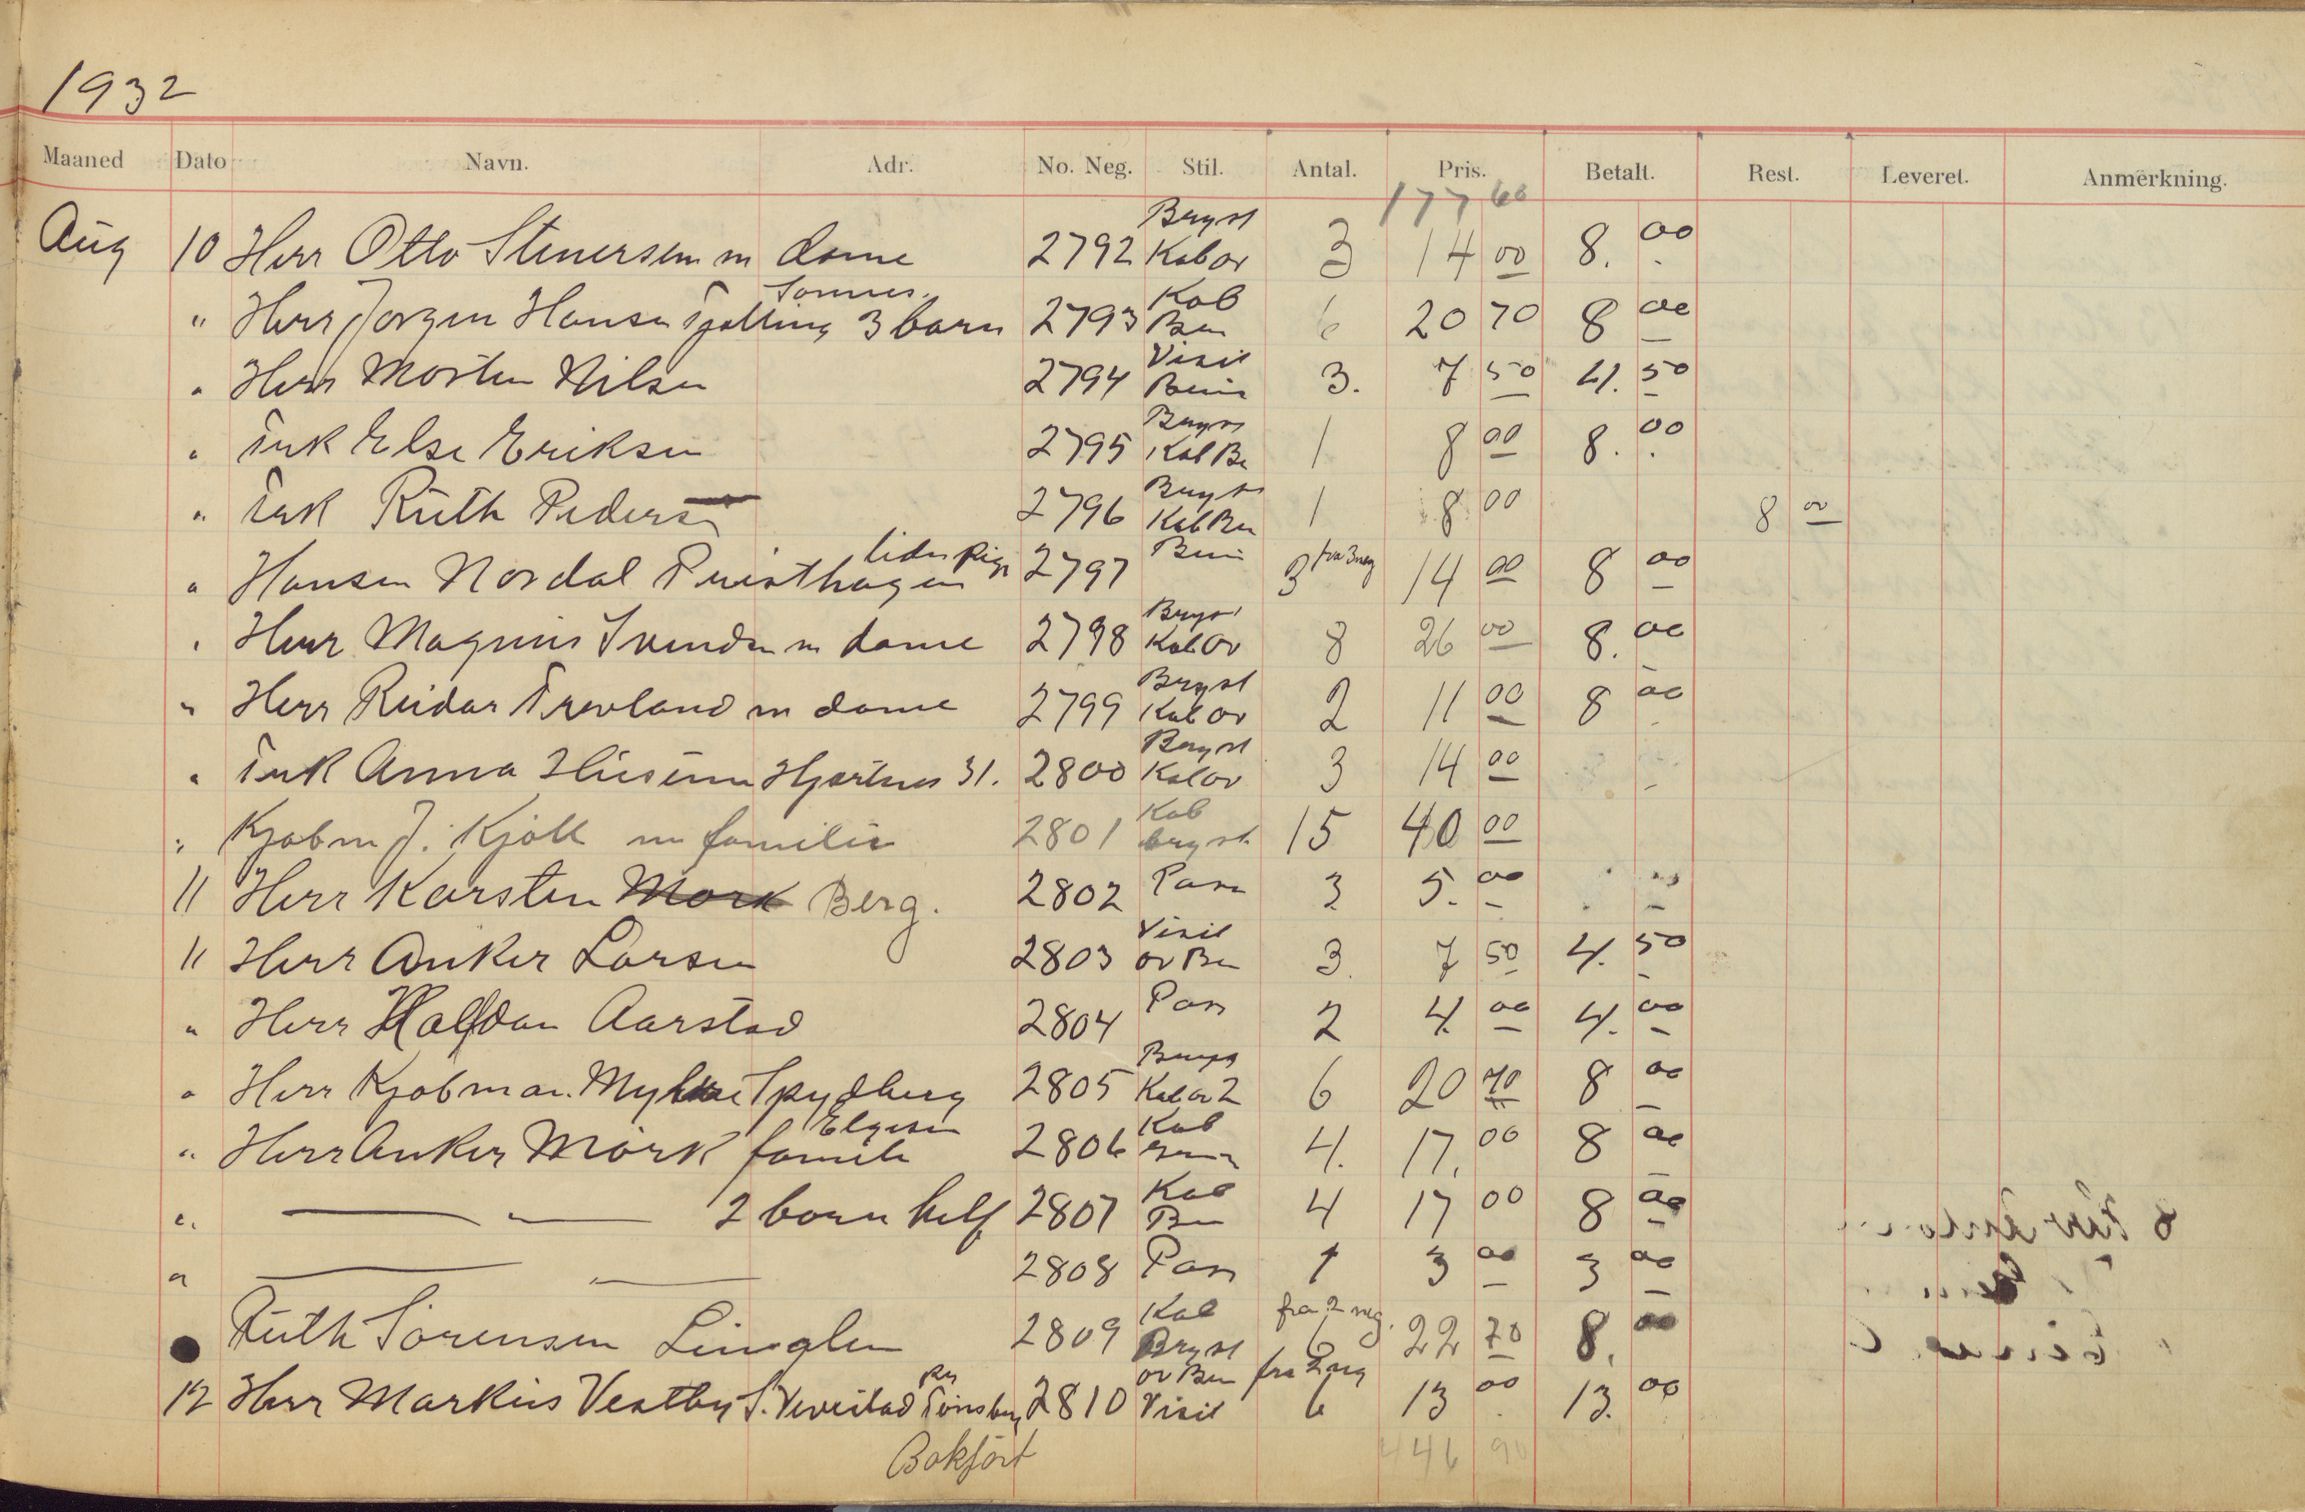 1932
Maaned Dato Navn. Adr. No. Neg. Stil. Antal. Pris. Betalt. Rest. Leveret. Anmerkning.
177 60
Aug 10 Herr Otto Stenersen m dame 2792 Bryst Kab ov 3 14 00 8. 00
" Herr Jorgen Hansen Tjølling Sønnes. 3 barn 2793 Kab Ben 6 20 70 8 00
" Herr Morten Nilsen 2794 Visit Bens 3. 7 50 4. 50
" Frk Else Eriksen 2795 Bryst Kab Be 1 8 00 8. 00
" Frk Ruth Pedersen 2796 Bryst Kab Ben 1 8 00 8 00
" Hansen Nordal Preisthagen liden Pige 2797 Ben 3 fra 3 neg 14 00 8 00
" Herr Magnus Svendsen m dame 2798 Bryst Kab ov 8 26 00 8. 00
" Herr Reidar Trevland m dame 2799 Bryst Kab ov 2 11 00 8 00
" Frk Anna Hjertnes 31. 2800 Bryst Kab ov 3 14 00
" Kjøbm J. Kjøll m familie 2801 Kab bryst 15 40 00
11 Herr Karsten Mork Berg. 2802 Pass 3 5. 00
11 Herr Anker Larsen 2803 Visit ov Ben 3. 7 50 4. 50
" Herr Halfdan Aarstad 2804 Pass 2 4. 00 4. 00
" Herr Kjøbman. Spydberg 2805 Bryst Kab ov 2 6 20 70 8 00
" Herr Anker Mörk famile Elgesen 2806 Kab 4. 17. 00 8 00
" — — 2 barn helf 2807 Kab Ben 4 17 00 8 00
" — — 2808 Pass 1 3 00 3 00
Ruth Sörensen Linglem 2809 Kab Bryst fra 2 neg. 6 22 70 8. 00
12 Herr Markus Vestby S. Veierlad per Tönsberg 2810 ov Ben Visit fra 2 neg 6 13 00 13. 00
Bokfört 446 90